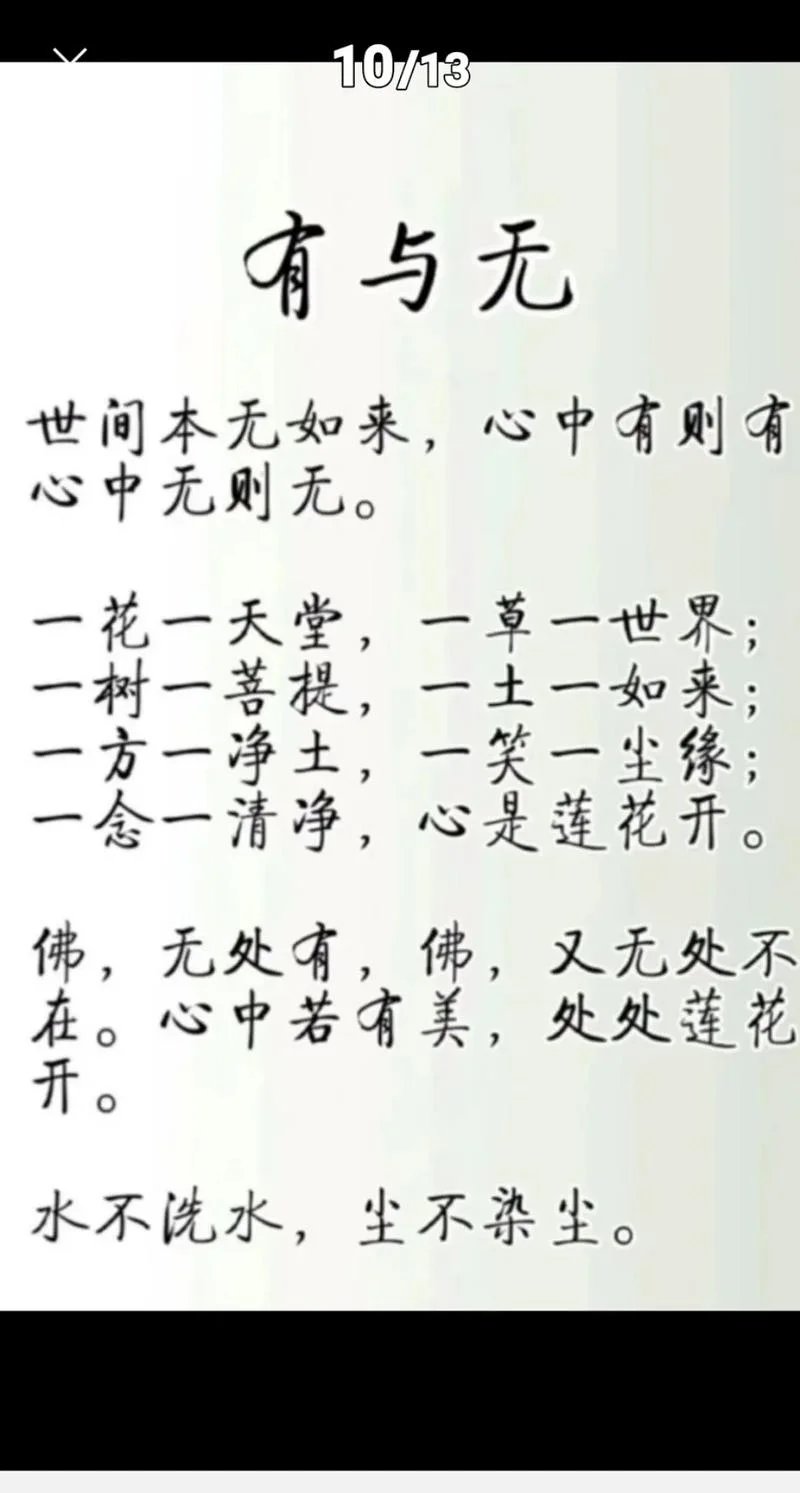 10/13
有与无
世间本无如来，心中有则有
心中无则无。
一花一天堂，一草一世界；
一树一菩提，一土一如来；
一方一净土，一笑一尘缘；
一念一清净，心是莲花开。
佛，无处有，佛，又无处不
在。心中若有美，处处莲花
开。
水不洗水，尘不染尘。